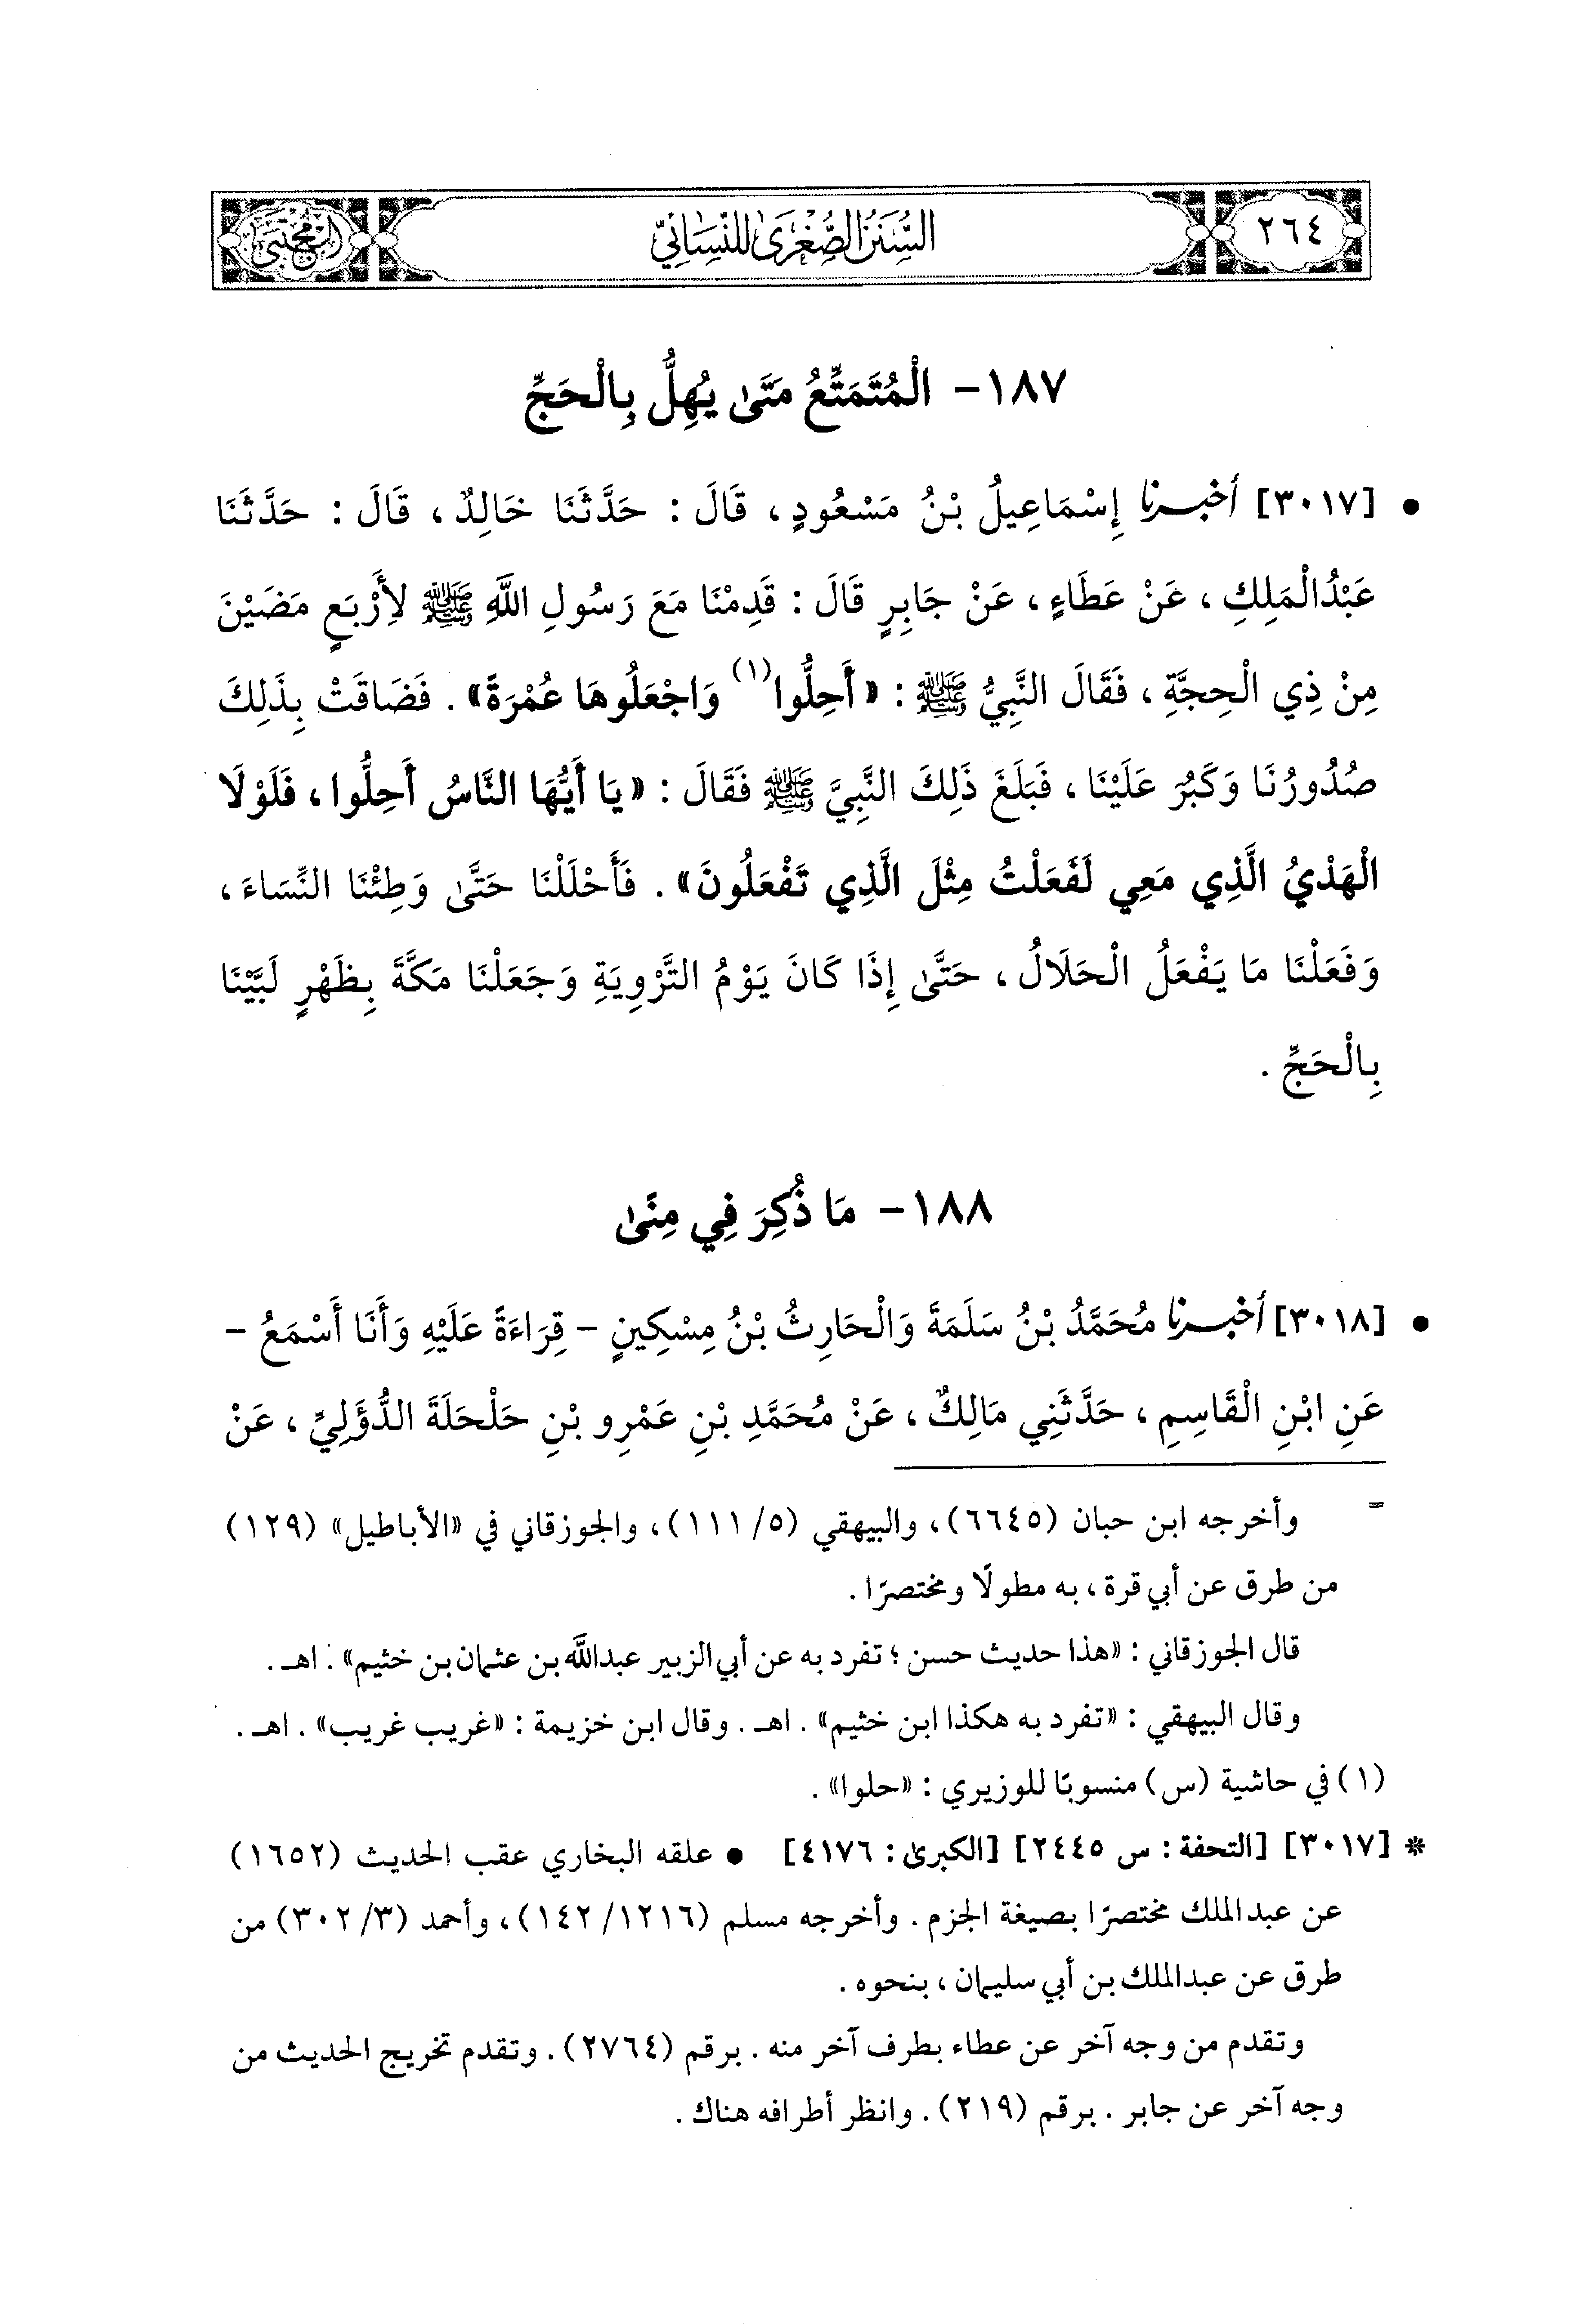 ٢٦٤
السُّنَنُ الصُّغْرَىٰ لِلنَّسَائِيِّ
المجتبى
١٨٧- الْمُتَمَتِّعُ مَتَىٰ يُهِلُّ بِالْحَجِّ
• [٣٠١٧] أخبرنا إِسْمَاعِيلُ بْنُ مَسْعُودٍ، قَالَ: حَدَّثَنَا خَالِدٌ، قَالَ: حَدَّثَنَا
عَبْدُالْمَلِكِ، عَنْ عَطَاءٍ، عَنْ جَابِرٍ قَالَ: قَدِمْنَا مَعَ رَسُولِ اللَّهِ ﷺ لِأَرْبَعٍ مَضَيْنَ
مِنْ ذِي الْحِجَّةِ، فَقَالَ النَّبِيُّ ﷺ: «أَحِلُّوا(١) وَاجْعَلُوهَا عُمْرَةً». فَضَاقَتْ بِذَلِكَ
صُدُورُنَا وَكَبُرَ عَلَيْنَا، فَبَلَغَ ذَلِكَ النَّبِيَّ ﷺ فَقَالَ: «يَا أَيُّهَا النَّاسُ أَحِلُّوا، فَلَوْلَا
الْهَدْيُ الَّذِي مَعِي لَفَعَلْتُ مِثْلَ الَّذِي تَفْعَلُونَ». فَأَحْلَلْنَا حَتَّىٰ وَطِئْنَا النِّسَاءَ،
وَفَعَلْنَا مَا يَفْعَلُ الْحَلَالُ، حَتَّىٰ إِذَا كَانَ يَوْمُ التَّرْوِيَةِ وَجَعَلْنَا مَكَّةَ بِظَهْرٍ لَبَّيْنَا
بِالْحَجِّ.
١٨٨- مَا ذُكِرَ فِي مِنًىٰ
• [٣٠١٨] أخبرنا مُحَمَّدُ بْنُ سَلَمَةَ وَالْحَارِثُ بْنُ مِسْكِينٍ - قِرَاءَةً عَلَيْهِ وَأَنَا أَسْمَعُ -
عَنِ ابْنِ الْقَاسِمِ، حَدَّثَنِي مَالِكٌ، عَنْ مُحَمَّدِ بْنِ عَمْرِو بْنِ حَلْحَلَةَ الدُّؤَلِيِّ، عَنْ
= وأخرجه ابن حبان (٦٦٤٥)، والبيهقي (٥/ ١١١)، والجوزقاني في «الأباطيل» (١٢٩)
من طرق عن أبي قرة، به مطولًا ومختصرًا.
قال الجوزقاني: «هذا حديث حسن؛ تفرد به عن أبي الزبير عبدالله بن عثمان بن خثيم». اهـ.
وقال البيهقي: «تفرد به هكذا ابن خثيم». اهـ. وقال ابن خزيمة: «غريب غريب». اهـ.
(١) في حاشية (س) منسوبًا للوزيري: «حلوا».
* [٣٠١٧] [التحفة: س ٢٤٤٥] [الكبرىٰ: ٤١٧٦] • علقه البخاري عقب الحديث (١٦٥٢)
عن عبدالملك مختصرًا بصيغة الجزم. وأخرجه مسلم (١٢١٦/ ١٤٢)، وأحمد (٣/ ٣٠٢) من
طرق عن عبدالملك بن أبي سليمان، بنحوه.
وتقدم من وجه آخر عن عطاء بطرف آخر منه. برقم (٢٧٦٤). وتقدم تخريج الحديث من
وجه آخر عن جابر. برقم (٢١٩). وانظر أطرافه هناك.